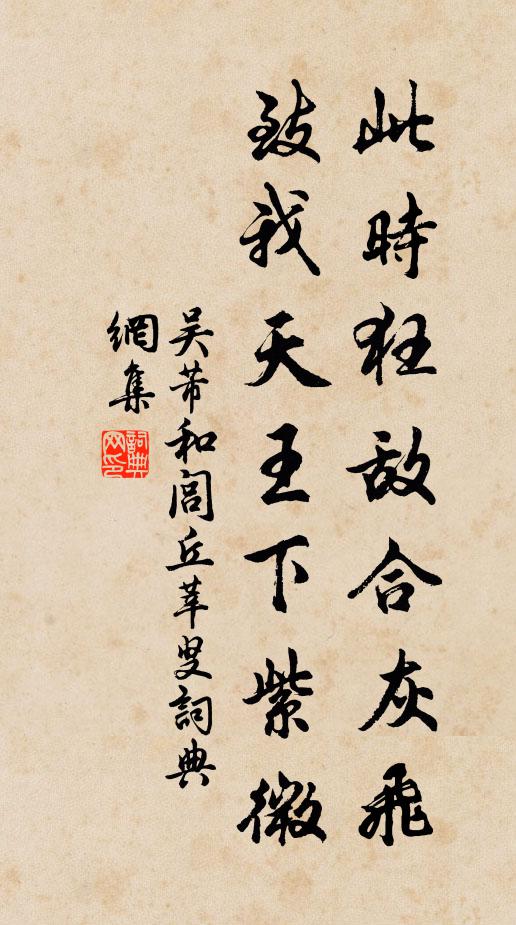 此時狂敵合灰飛
致我天王下紫微
吳芾和閻丘莘叟詞典
網集
詞典
网印